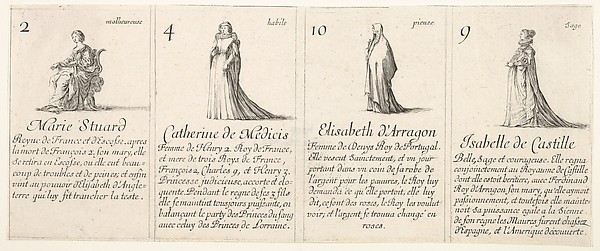 2 malheureuse
Marie Stuard
Reyne de France et d'Escosse, apres
la mort de François 2, son mary, elle
se retira en Escosse, ou elle eut beau-
coup de troubles et de peines, et enfin
vint au pouuoir d'Elisabeth d'Angle-
terre qui luy fit trancher la teste.
4 habile
Catherine de Medicis
Femme de Henry 2. Roy de France,
et mere de trois Roys de France
François 2, Charles 9, et Henry 3.
Princesse judicieuse, accorte et elo-
quente. Pendant le regne de ses 2 fils
elle se maintint tousiours puissante, en
balançant le party des Princes du sang
avec celuy des Princes de Lorraine.
10 pieuse
Elisabeth d'Arragon
Femme de Denys Roy de Portugal.
Elle vescut Sainctement, et vn jour
portant dans vn coin de sa robe de
l'argent pour les pauures, le Roy luy
demanda ce qu'elle portoit, elle luy
dit, ce sont des roses, le Roy les voulut
voir, et l'argent se trouua changé en
roses.
9 Sage
Isabelle de Castille
Belle, Sage et courageuse. Elle regna
conjoinctement au Royaume de Castille
dont elle estoit heritiere, auec Ferdinand
Roy d'Arragon, son mary, qu'elle aymoit
passionnement, et toutefois elle mainte-
noit sa puissance egale a la Sienne.
de son regne les Maures furent chassez
d'Espagne, et l'Amerique découuerte.